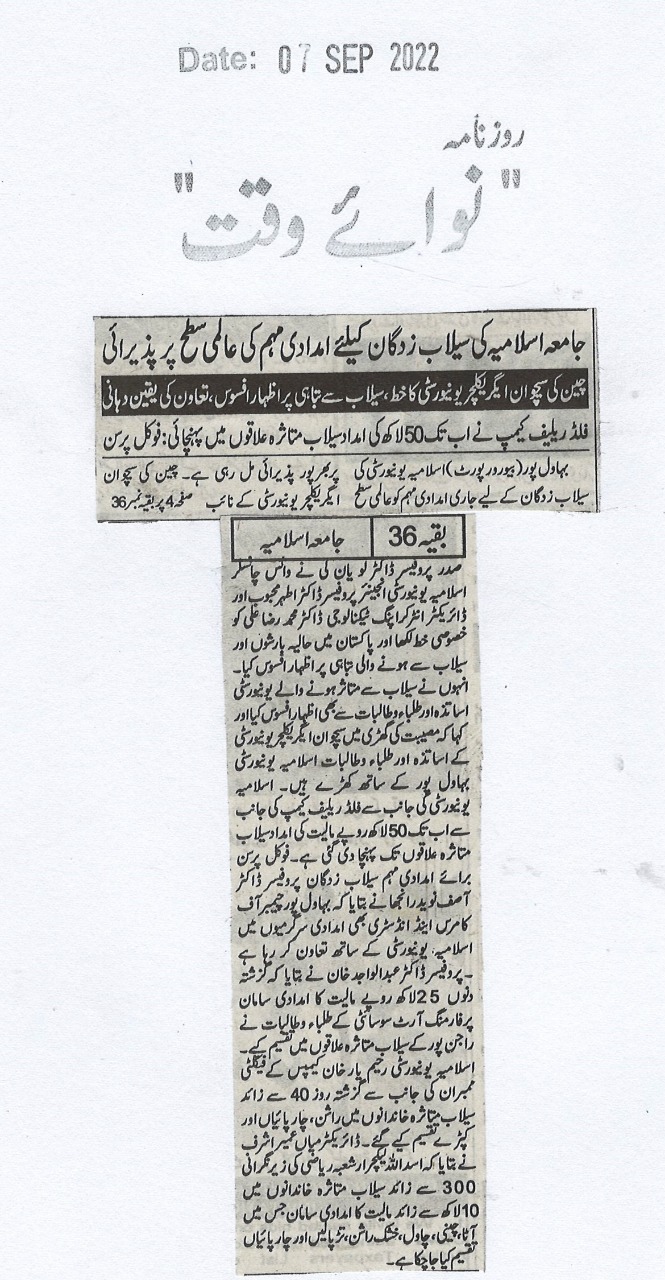 Date: 07 SEP 2022
روزنامہ
"نوائے وقت"
جامعہ اسلامیہ کی سیلاب زدگان کیلئے امدادی مہم کی عالمی سطح پر پذیرائی
چین کی سچوان ایگریکلچر یونیورسٹی کا خط، سیلاب سے تباہی پر اظہار افسوس، تعاون کی یقین دہانی
فلڈ ریلیف کیمپ نے اب تک 50 لاکھ کی امداد سیلاب متاثرہ علاقوں میں پہنچائی: فوکل پرسن
بہاول پور (بیورو رپورٹ) اسلامیہ یونیورسٹی کی
سیلاب زدگان کے لیے جاری امدادی مہم کو عالمی سطح
پر بھرپور پذیرائی مل رہی ہے۔ چین کی سچوان
ایگریکلچر یونیورسٹی کے نائب صفحہ 4 پر بقیہ نمبر 36
بقیہ 36 جامعہ اسلامیہ
صدر پروفیسر ڈاکٹر لو یان کی نے وائس چانسلر
اسلامیہ یونیورسٹی انجینئر پروفیسر ڈاکٹر اطہر محبوب اور
ڈائریکٹر انٹرکراپنگ ٹیکنالوجی ڈاکٹر محمد رضا علی کو
خصوصی خط لکھا اور پاکستان میں حالیہ بارشوں اور
سیلاب سے ہونے والی تباہی پر اظہار افسوس کیا۔
انہوں نے سیلاب سے متاثر ہونے والے یونیورسٹی
اساتذہ اور طلباء و طالبات سے بھی اظہار افسوس کیا اور
کہا کہ مصیبت کی گھڑی میں سچوان ایگریکلچر یونیورسٹی
کے اساتذہ اور طلباء و طالبات اسلامیہ یونیورسٹی
بہاول پور کے ساتھ کھڑے ہیں۔ اسلامیہ
یونیورسٹی کی جانب سے فلڈ ریلیف کیمپ کی جانب
سے اب تک 50 لاکھ روپے مالیت کی امداد سیلاب
متاثرہ علاقوں تک پہنچا دی گئی ہے۔ فوکل پرسن
برائے امدادی مہم سیلاب زدگان پروفیسر ڈاکٹر
آصف نوید رانجھا نے بتایا کہ بہاول پور چیمبر آف
کامرس اینڈ انڈسٹری بھی امدادی سرگرمیوں میں
اسلامیہ یونیورسٹی کے ساتھ تعاون کر رہا ہے
۔ پروفیسر ڈاکٹر عبدالواجد خان نے بتایا کہ گزشتہ
دنوں 25 لاکھ روپے مالیت کا امدادی سامان
پرفارمنگ آرٹ سوسائٹی کے طلباء و طالبات نے
راجن پور کے سیلاب متاثرہ علاقوں میں تقسیم کیے۔
اسلامیہ یونیورسٹی رحیم یار خان کیمپس کے فیکلٹی
ممبران کی جانب سے گزشتہ روز 40 سے زائد
سیلاب متاثرہ خاندانوں میں راشن، چارپائیاں اور
کپڑے تقسیم کیے گئے۔ ڈائریکٹر میاں عمیر اشرف
نے بتایا کہ اسد اللہ لیکچرار شعبہ ریاضی کی زیر نگرانی
300 سے زائد سیلاب متاثرہ خاندانوں میں
10 لاکھ سے زائد مالیت کا امدادی سامان جس میں
آٹا، چینی، چاول، خشک راشن، تڑپالیں اور چارپائیاں
تقسیم کیا جا چکا ہے۔